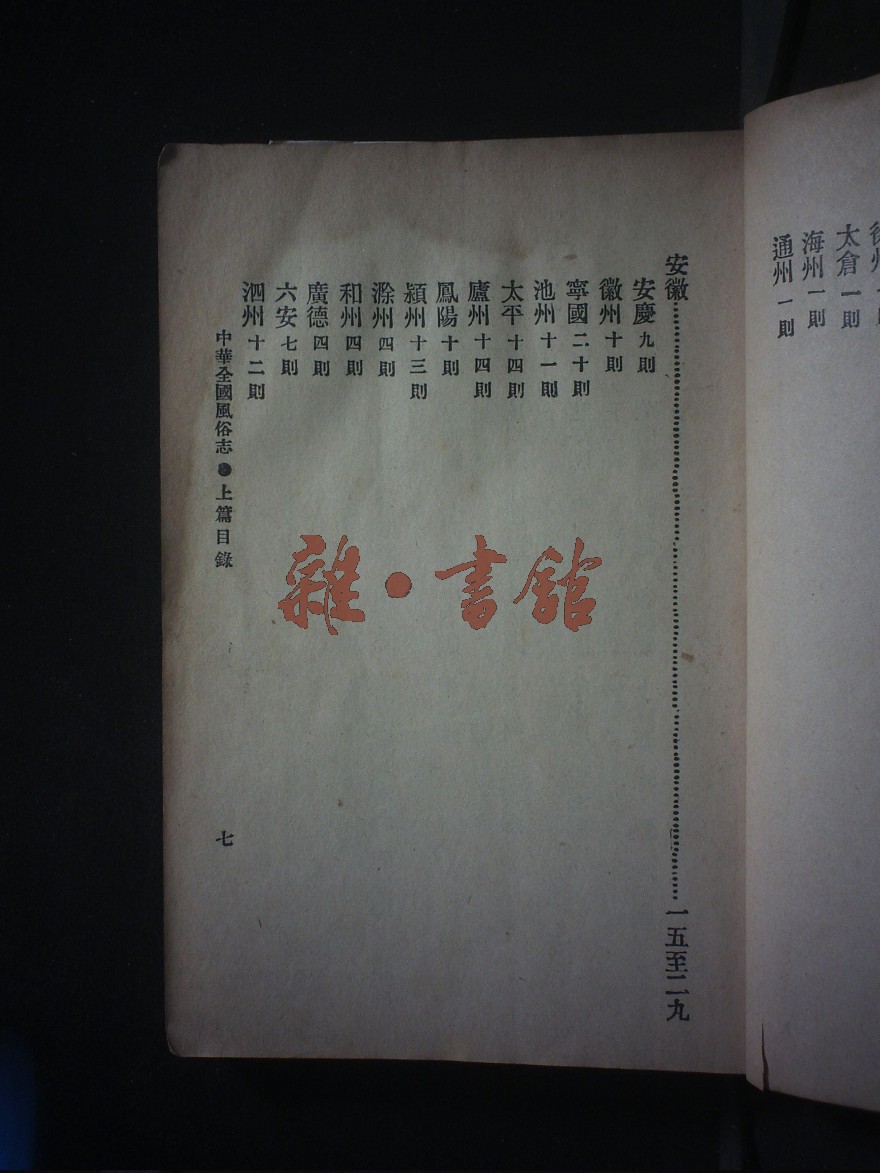 徐州
太倉 一則
海州 一則
通州 一則
安徽……一五至二九
安慶 九則
徽州 十則
寧國 二十則
池州 十一則
太平 十四則
廬州 十四則
鳳陽 十則
潁州 十三則
滁州 四則
和州 四則
廣德 四則
六安 七則
泗州 十二則
中華全國風俗志●上篇目錄 七
雜·書館